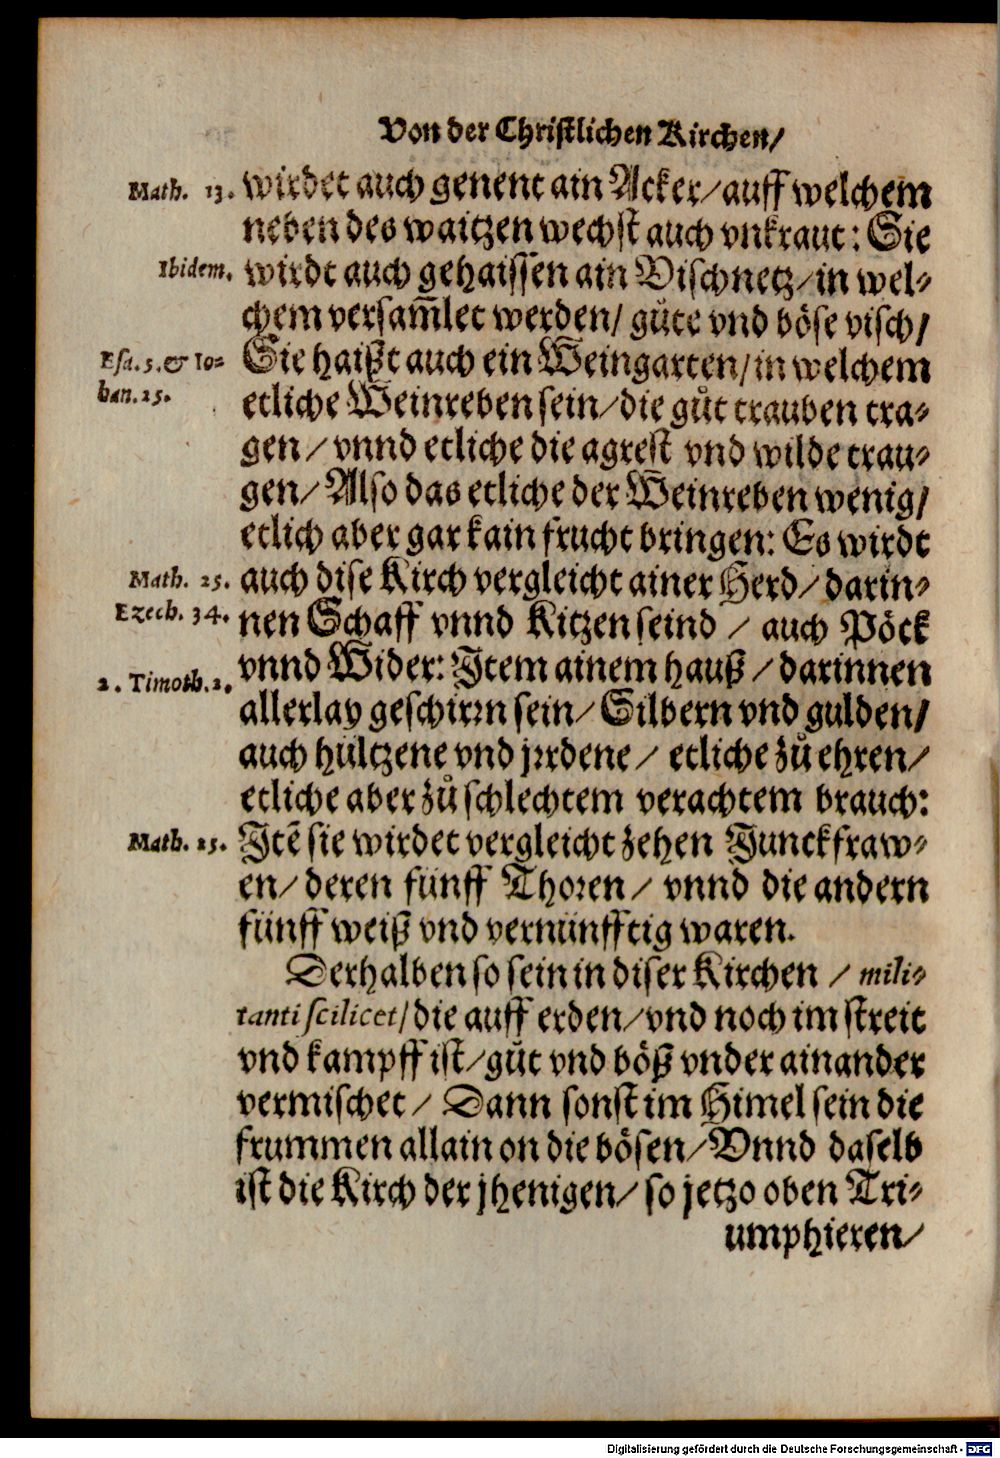 Von der Christlichen Kirchen/
Math. 13. wirdet auch genent ain Acker/auff welchem
neben des waitzen wechst auch vnkraut: Sie
Ibidem. wirdt auch gehaissen ain Vischnetz/in wel-
chem versam̅let werden/ gůte vnd böse visch/
Esa. 5. & Io- Sie haißt auch ein Weingarten/in welchem
han. 15. etliche Weinreben sein/die gůt trauben tra-
gen/ vnnd etliche die agrest vnd wilde trau-
gen/ Also das etliche der Weinreben wenig/
etlich aber gar kain frucht bringen: Es wirdt
Math. 25. auch dise Kirch vergleicht ainer Herd/ darin-
Ezech. 34. nen Schaff vnnd Kitzen seind / auch Pöck
vnnd Wider: Item ainem hauß / darinnen
2. Timoth. 2. allerlay geschirꝛn sein/ Silbern vnd gulden/
auch hültzene vnd jrꝛdene / etliche zů ehren/
etliche aber zů schlechtem verachtem brauch:
Math. 25. Itē sie wirdet vergleicht zehen Junckfraw-
en/ deren fünff Thoꝛen / vnnd die andern
fünff weiß vnd vernünfftig waren.
Derhalben so sein in diser Kirchen / mili-
tanti scilicet/ die auff erden/ vnd noch im streit
vnd kampff ist/ gůt vnd böß vnder ainander
vermischet / Dann sonst im Himel sein die
frummen allain on die bösen/ Vnnd daselb
ist die Kirch der jhenigen/ so jetzo oben Tri-
umphieren/
Digitalisierung gefördert durch die Deutsche Forschungsgemeinschaft - DFG